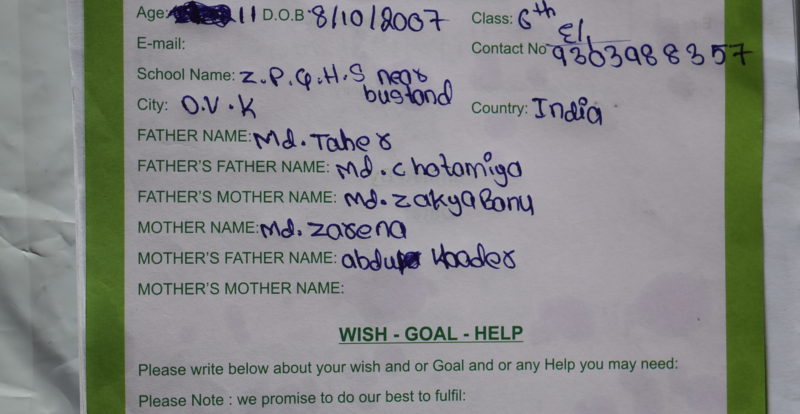 Age: 11 D.O.B 8/10/2007 Class: 6th
E-mail:
Contact No 9303988357
School Name: Z.P.G.H.S near
bustand
City: O.V.K Country: India
FATHER NAME: Md. Taher
FATHER'S FATHER NAME: Md. Chotamiya
FATHER'S MOTHER NAME: Md. Zakya Banu
MOTHER NAME: Md. Zarena
MOTHER'S FATHER NAME: abdul
MOTHER'S MOTHER NAME:
WISH - GOAL - HELP
Please write below about your wish and or Goal and or any Help you may need:
Please Note : we promise to do our best to fulfil: